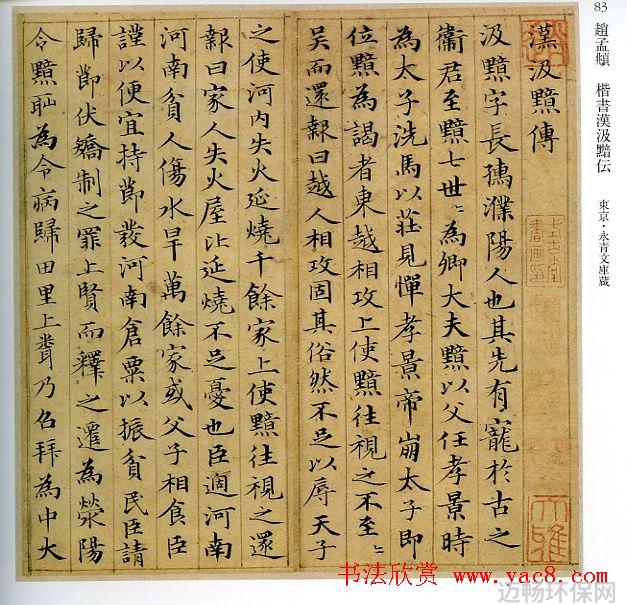 83 趙孟頫 楷書漢汲黯伝 東京・永青文庫蔵
漢汲黯傳
汲黯字長孺濮陽人也其先有寵於古之
衞君至黯七世〻為卿大夫黯以父任孝景時
為太子洗馬以莊見憚孝景帝崩太子即
位黯為謁者東越相攻上使黯往視之不至〻
吳而還報曰越人相攻固其俗然不足以辱天子
之使河内失火延燒千餘家上使黯往視之還
報曰家人失火屋比延燒不足憂也臣適河南
河南貧人傷水旱萬餘家或父子相食臣
謹以便宜持節發河南倉粟以振貧民臣請
歸節伏矯制之罪上賢而釋之遷為滎陽
令黯恥為令病歸田里上聞乃召拜為中大
大雅
书法欣赏 www.yac8.com
迈畅环保网